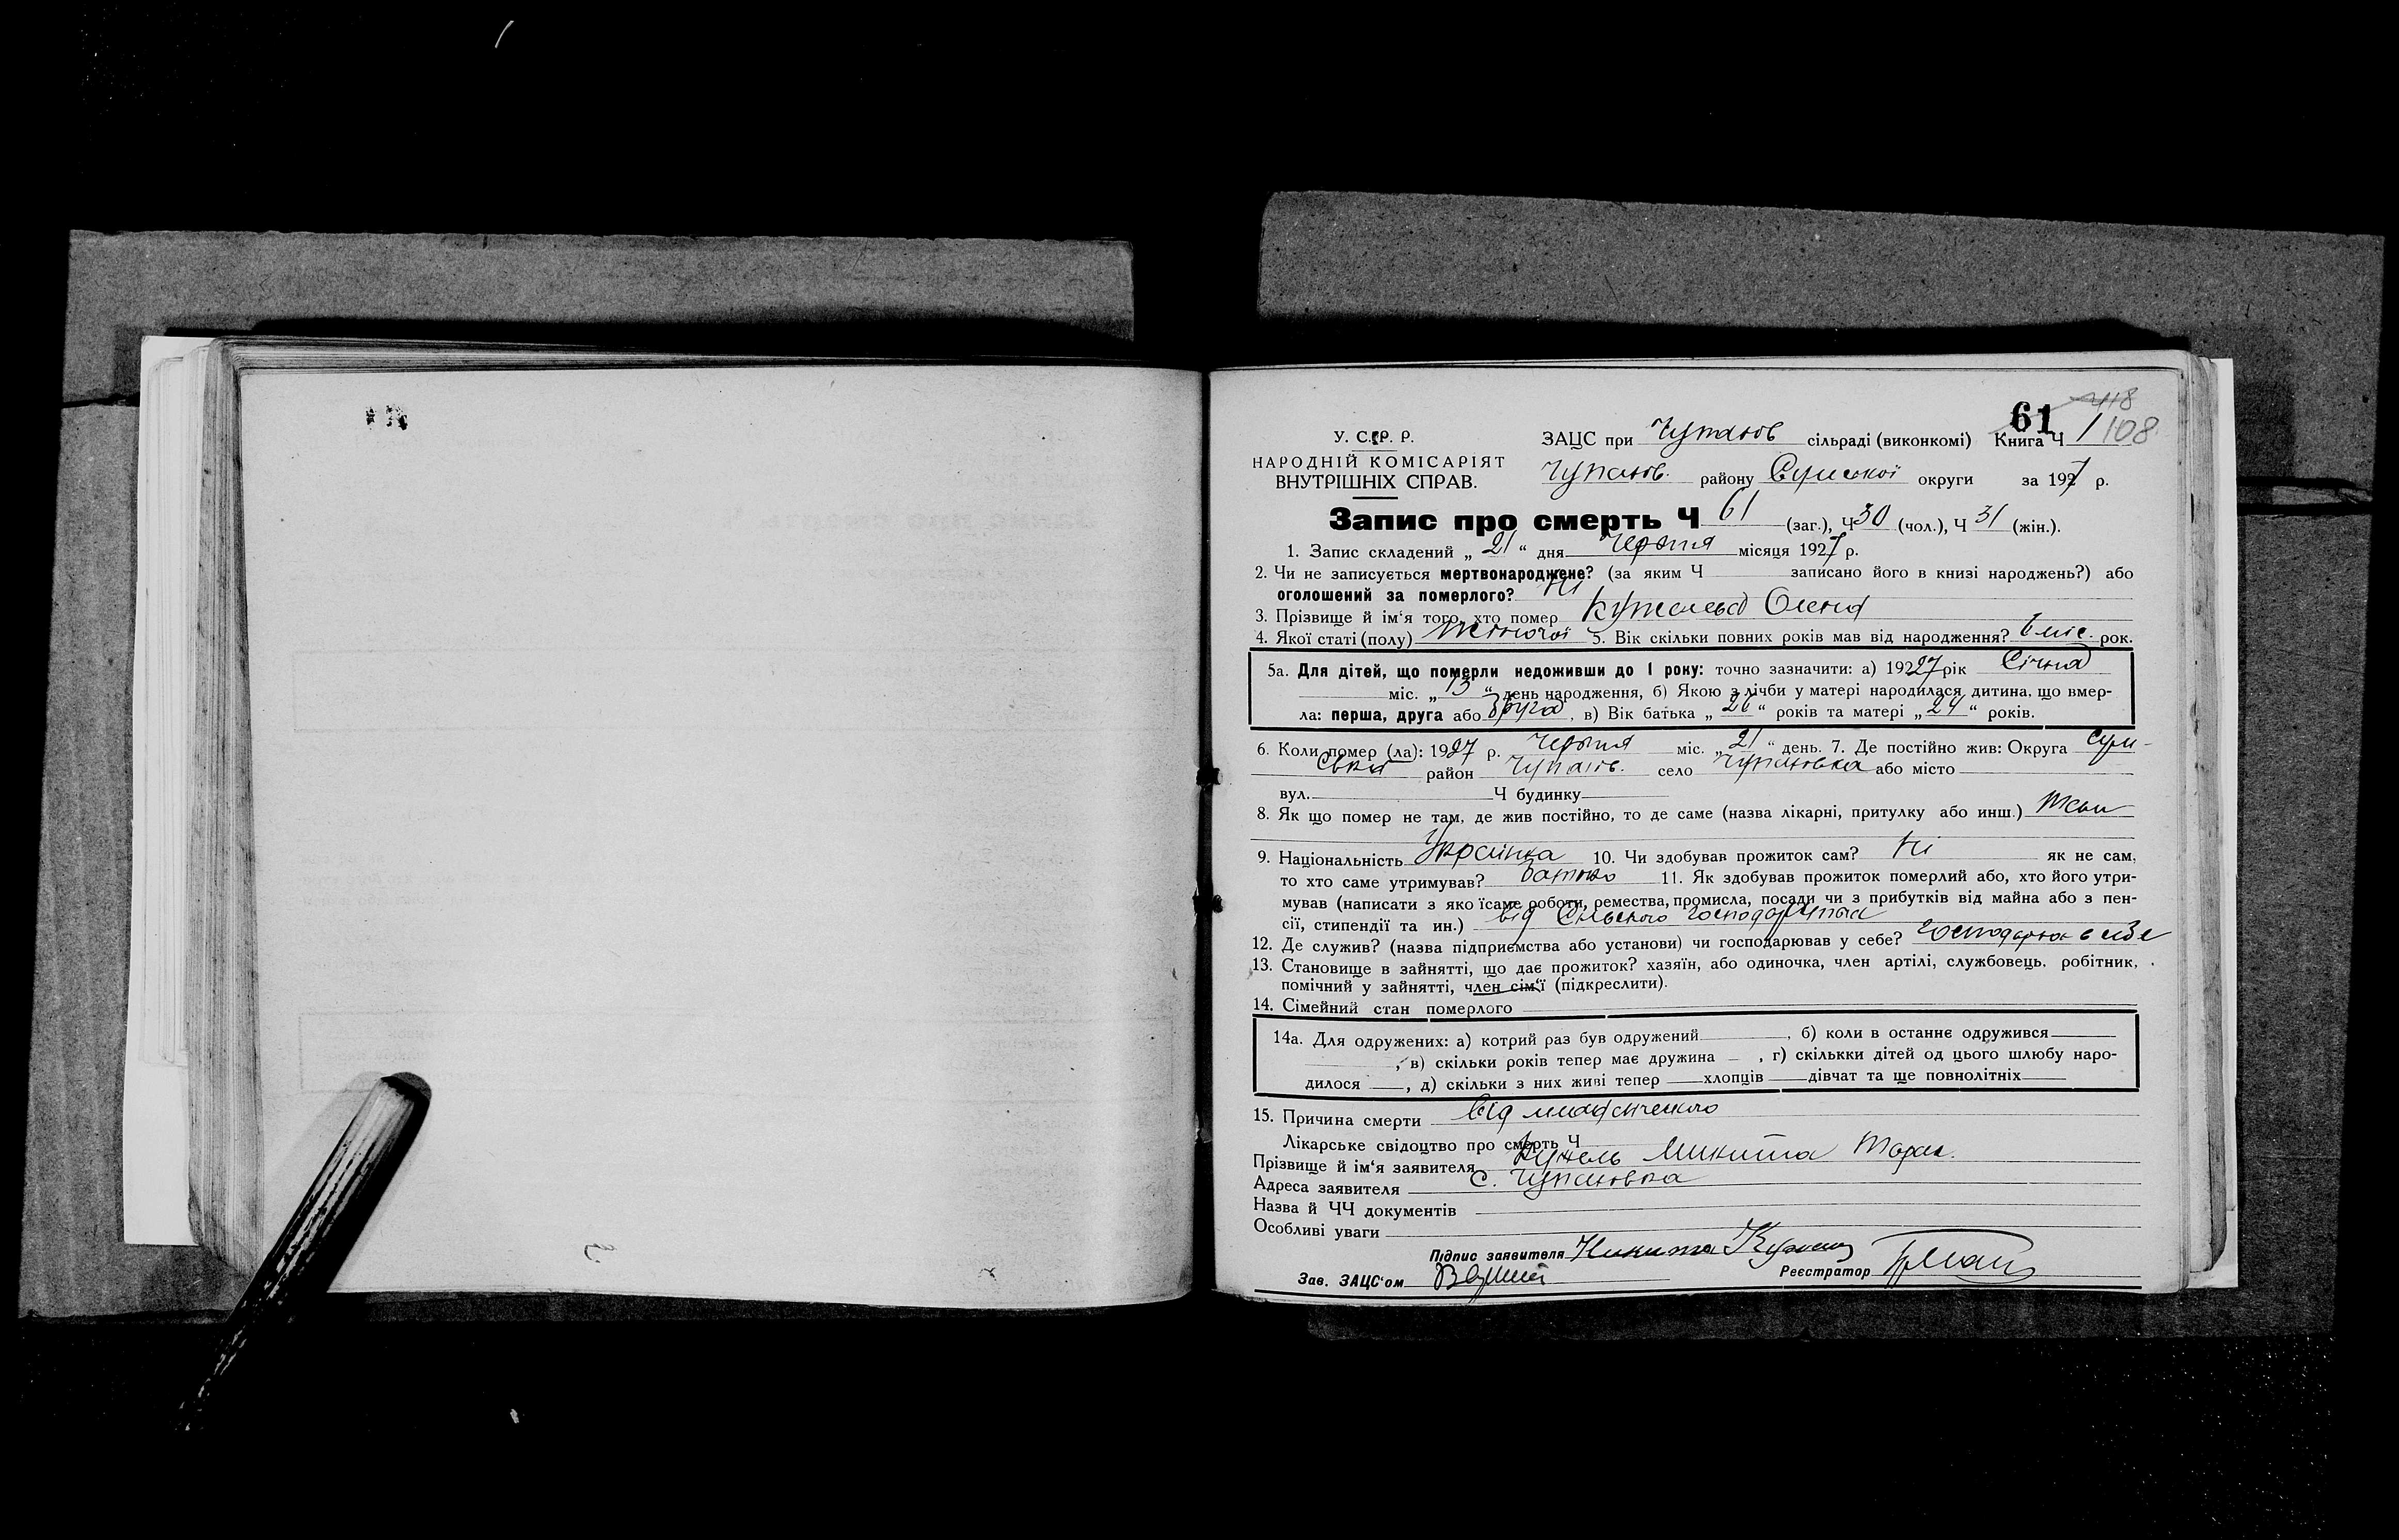 61 118
У. С. Р. Р. ЗАЦС при Чупахов сільраді (виконкомі) Книга Ч 1 108
НАРОДНІЙ КОМІСАРІЯТ
ВНУТРІШНІХ СПРАВ. Чупахов. району Сумської округи за 1927 р.
Запис про смерть Ч 61 (заг.), Ч 30 (чол.), Ч 31 (жін.).
1. Запис складений „ 21 “ дня Червня місяця 1927 р.
2. Чи не записується мертвонароджене? (за яким Ч записано його в книзі народжень?) або
оголошений за померлого? Ні
3. Прізвище й ім‘я того, хто помер Олена
4. Якої статі (полу) жіночої 5. Вік скільки повних років мав від народження? 6 міс. рок.
5а. Для дітей, що померли недоживши до 1 року: точно зазначити: а) 1927 рік Січня
міс. „ 13 “ день народження, б) Якою з лічби у матері народилася дитина, що вмер-
ла: перша, друга або друга, в) Вік батька „ 26 “ років та матері „ 24 “ років.
6. Коли помер (ла): 1927 р. Червня міс. „ 21 “ день. 7. Де постійно жив: Округа Сум-
ська район Чупахов. село Чупаховка або місто
вул. Ч будинку
8. Як що помер не там, де жив постійно, то де саме (назва лікарні, притулку або инш.) там
9. Національність Українка 10. Чи здобував прожиток сам? Ні як не сам,
то хто саме утримував? батько 11. Як здобував прожиток померлий або, хто його утри-
мував (написати з яко їсаме роботи, ремества, промисла, посади чи з прибутків від майна або з пен-
сії, стипендії та ин.) від Сільського господарства
12. Де служив? (назва підприємства або установи) чи господарював у себе?
13. Становище в зайнятті, що дає прожиток? хазяїн, або одиночка, член артілі, службовець, робітник,
помічний у зайнятті, член сім‘ї (підкреслити).
14. Сімейний стан померлого
14а. Для одружених: а) котрий раз був одружений , б) коли в останнє одружився
, в) скільки років тепер має дружина — , г) скількки дітей од цього шлюбу наро-
дилося —, д) скільки з них живі тепер — хлопців — дівчат та ще повнолітніх
15. Причина смерти від
Лікарське свідоцтво про смерть Ч
Прізвище й ім‘я заявителя Кужель Микита Тарас.
Адреса заявителя с. Чупаховка
Назва й ЧЧ документів
Особливі уваги
Підпис заявителя Никита
Зав. ЗАЦС‘ом Реєстратор